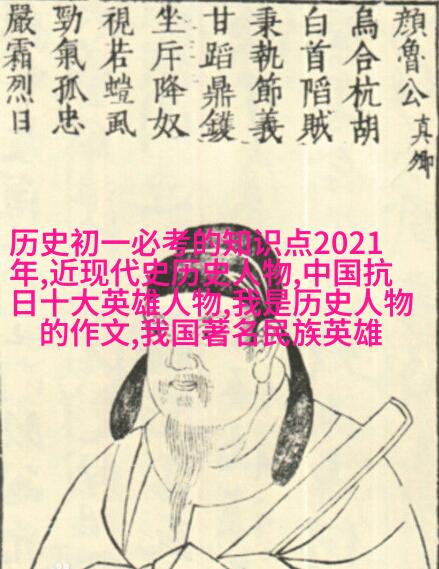 顔魯公真卿
烏合杭胡
白首䧟賊
秉執節義
甘蹈鼎鑊
坐斥降奴
視若螘虱
勁氣孤忠
嚴霜烈日
历史初一必考的知识点2021
年,近现代史历史人物,中国抗
日十大英雄人物,我是历史人物
的作文,我国著名民族英雄